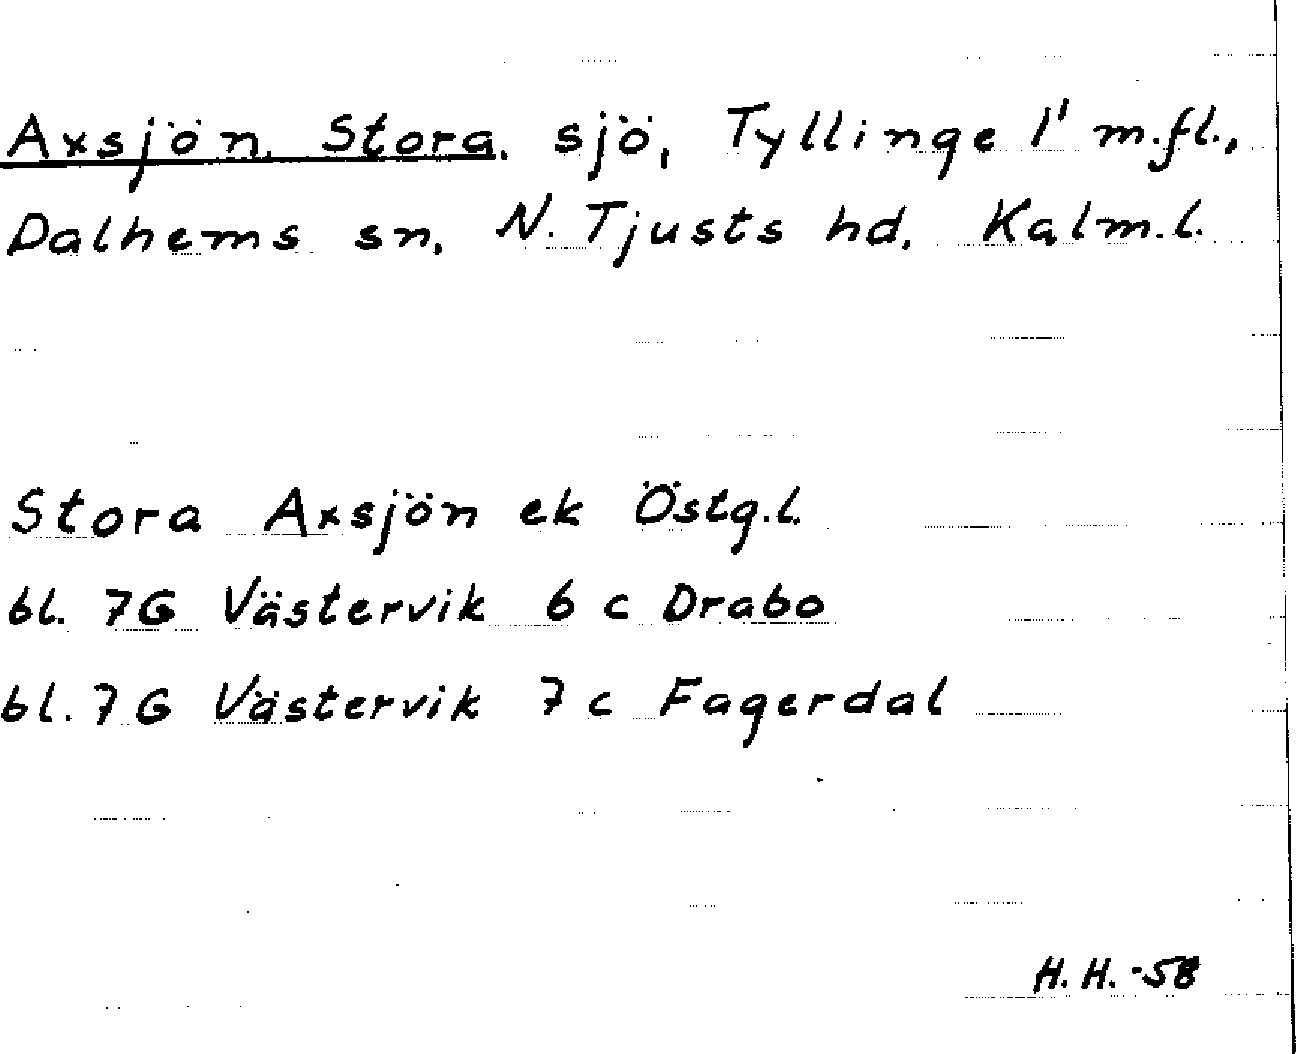 Axsjön, Stora, sjö, Tyllinge 1' m.fl.,
Dalhems sn, N. Tjusts hd, Kalm.l.
Stora Axsjön ek Östg.l.
bl. 7G Västervik 6 c Drabo
bl. 7G Västervik 7 c Fagerdal
H. H. -58